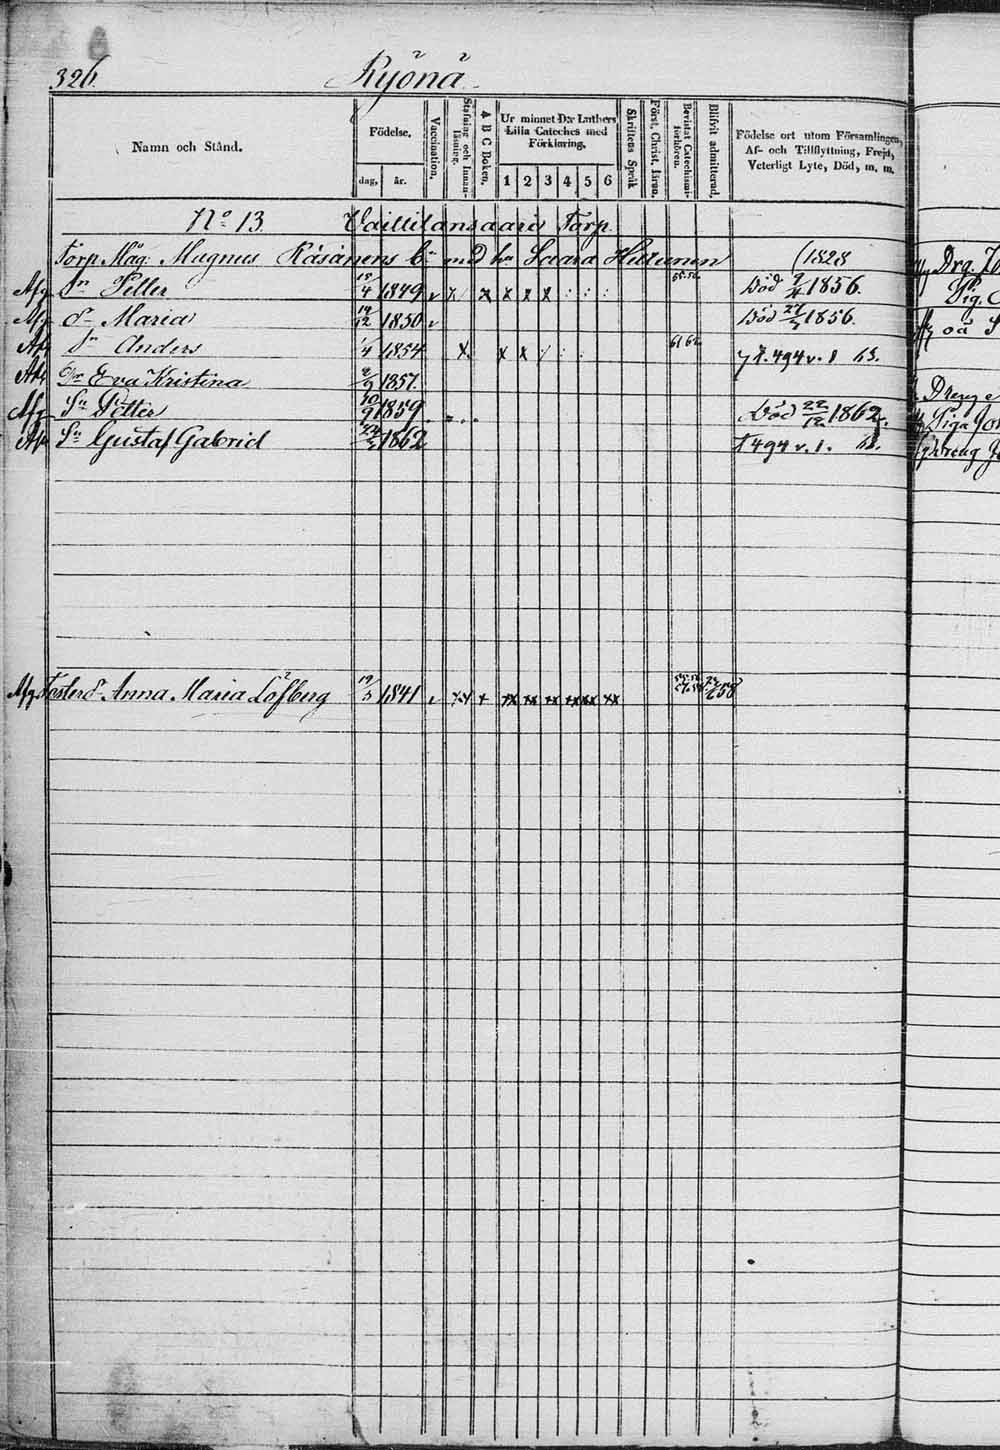 326.
Kyönä
Namn och Stånd.
Födelse.
dag.
år.
Vaccination.
Stafning och Innanläsning.
A B C Boken.
Ur minnet Dr Luthers Lilla Cateches med Förklaring.
1 2 3 4 5 6
Skriftens Språk
Först. Christ. läran.
Bevistat Catechismiförhören.
Blifvit admitterad.
Födelse ort utom Församlingen,
Af- och Tillflyttning, Frejd,
Veterligt Lyte, Död, m. m.
No 13. Vaittilansaari Torp
Torp. Måg. Magnus Räsänens b:n med h:u Saara Hutunen (1328
Afg Sn Petter 18/4 1849 v x x x x x : : : 55.56. Död 9/4 1856.
Afg dr Maria 19/12 1850 v Död 27/3 1856.
Afg Sn Anders 1/4 1854 x x x / : : 61 62 494 v. 1 63.
Afg Dr Eva Kristina 2/9 1857.
Afg Sn Petter 30/9 1859 Död 22/12 1862.
Afg Sn Gustaf Gabriel 24/3 1862 494 v. 1. 63.
Afg Fosterd. Anna Maria Löfberg 19/3 1841 v xx x xx xx xx xx xx xx 58
Drg.
Pig.
Dreng
Piga
Dreng